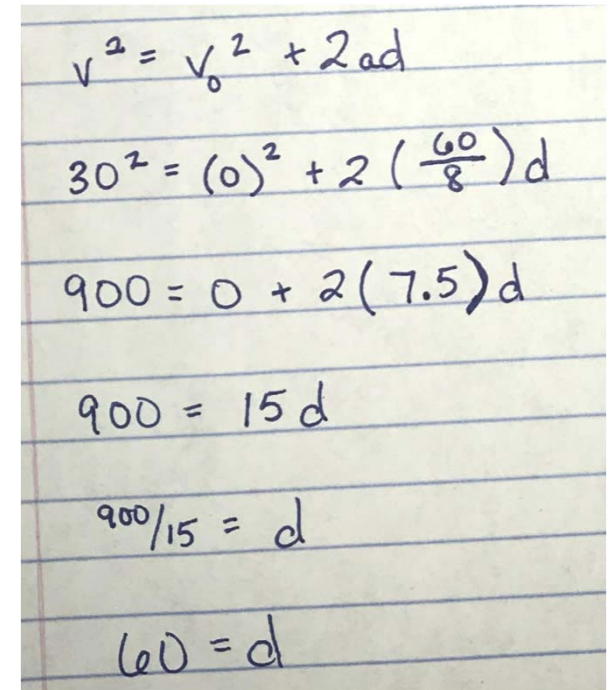 v² = v₀² + 2ad
30² = (0)² + 2(60/8)d
900 = 0 + 2(7.5)d
900 = 15d
900/15 = d
60 = d